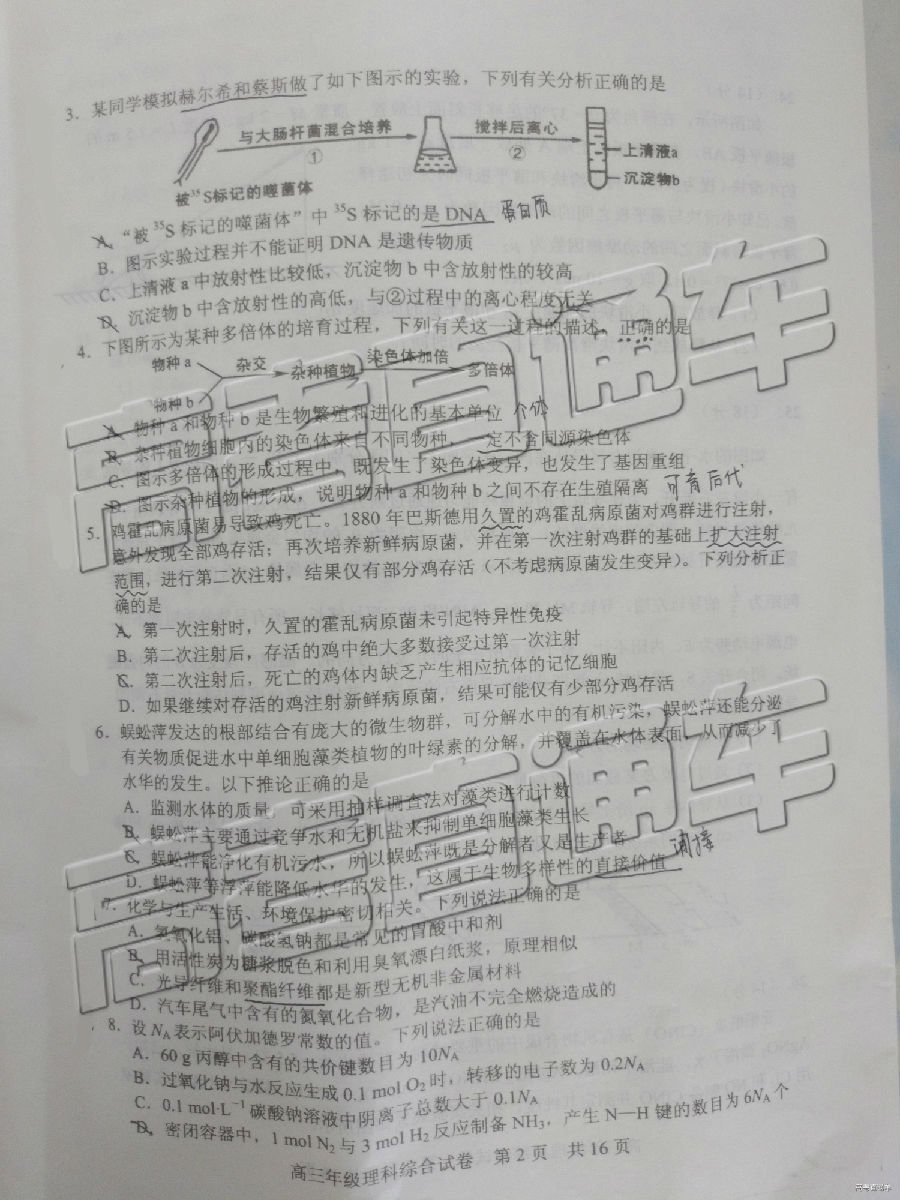 3. 某同学模拟赫尔希和蔡斯做了如下图示的实验，下列有关分析正确的是
与大肠杆菌混合培养
①
搅拌后离心
②
上清液a
沉淀物b
被³⁵S标记的噬菌体
A. “被³⁵S标记的噬菌体”中³⁵S标记的是DNA 蛋白质
B. 图示实验过程并不能证明DNA是遗传物质
C. 上清液a中放射性比较低，沉淀物b中含放射性的较高
D. 沉淀物b中含放射性的高低，与②过程中的离心程度无关
4. 下图所示为某种多倍体的培育过程，下列有关这一过程的描述，正确的是
物种a
杂交
杂种植物
染色体加倍
多倍体
物种b
A. 物种a和物种b是生物繁殖和进化的基本单位 个体
B. 杂种植物细胞内的染色体来自不同物种，一定不含同源染色体
C. 图示多倍体的形成过程中，既发生了染色体变异，也发生了基因重组
D. 图示杂种植物的形成，说明物种a和物种b之间不存在生殖隔离 可育后代
5. 鸡霍乱病原菌易导致鸡死亡。1880年巴斯德用久置的鸡霍乱病原菌对鸡群进行注射，
意外发现全部鸡存活；再次培养新鲜病原菌，并在第一次注射鸡群的基础上扩大注射
范围，进行第二次注射，结果仅有部分鸡存活（不考虑病原菌发生变异）。下列分析正
确的是
A. 第一次注射时，久置的霍乱病原菌未引起特异性免疫
B. 第二次注射后，存活的鸡中绝大多数接受过第一次注射
C. 第二次注射后，死亡的鸡体内缺乏产生相应抗体的记忆细胞
D. 如果继续对存活的鸡注射新鲜病原菌，结果可能仅有少部分鸡存活
6. 蜈蚣萍发达的根部结合有庞大的微生物群，可分解水中的有机污染，蜈蚣萍还能分泌
有关物质促进水中单细胞藻类植物的叶绿素的分解，并覆盖在水体表面，从而减少了
水华的发生。以下推论正确的是
A. 监测水体的质量，可采用抽样调查法对藻类进行计数
B. 蜈蚣萍主要通过竞争水和无机盐来抑制单细胞藻类生长
C. 蜈蚣萍能净化有机污水，所以蜈蚣萍既是分解者又是生产者
D. 蜈蚣萍等浮萍能降低水华的发生，这属于生物多样性的直接价值 间接
7. 化学与生产生活、环境保护密切相关。下列说法正确的是
A. 氢氧化铝、碳酸氢钠都是常见的胃酸中和剂
B. 用活性炭为糖浆脱色和利用臭氧漂白纸浆，原理相似
C. 光导纤维和聚酯纤维都是新型无机非金属材料
D. 汽车尾气中含有的氮氧化合物，是汽油不完全燃烧造成的
8. 设Nᴀ表示阿伏加德罗常数的值。下列说法正确的是
A. 60 g丙醇中含有的共价键数目为10Nᴀ
B. 过氧化钠与水反应生成0.1 mol O₂时，转移的电子数为0.2Nᴀ
C. 0.1 mol·L⁻¹碳酸钠溶液中阴离子总数大于0.1Nᴀ
D. 密闭容器中，1 mol N₂与3 mol H₂反应制备NH₃，产生N—H键的数目为6Nᴀ个
高三年级理科综合试卷 第2页 共16页
高考直通车
高考直通车